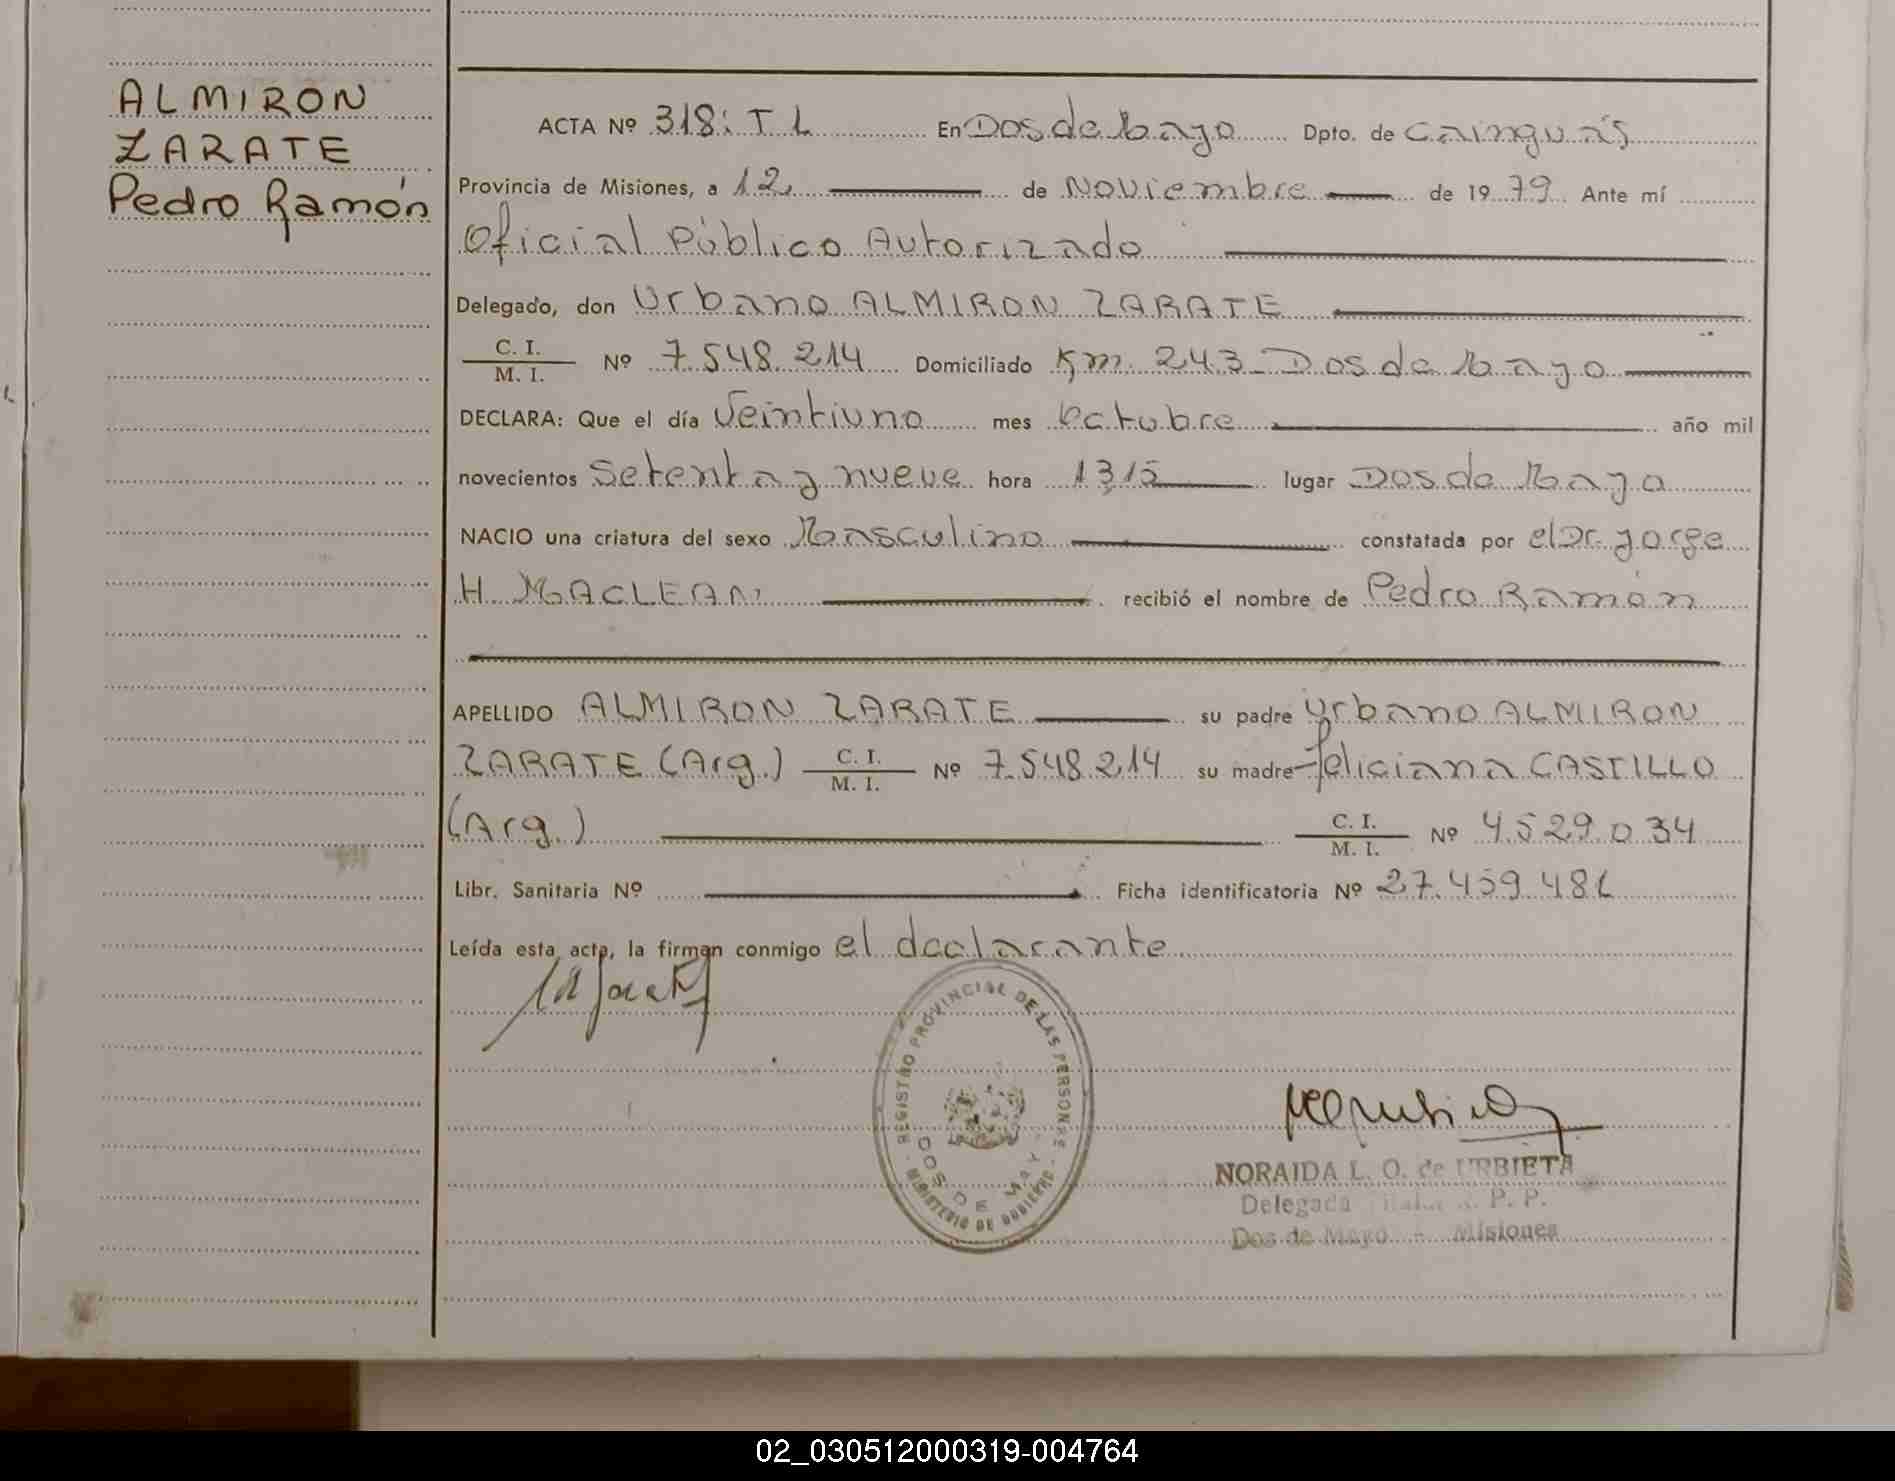 ALMIRON
ZARATE
Pedro Ramón
ACTA Nº 318: T I. En Dos de Mayo Dpto. de Cainguás
Provincia de Misiones, a 12 de Noviembre de 1979. Ante mí
Oficial Público Autorizado
Delegado, don Urbano ALMIRON ZARATE
C. I.
M. I. Nº 7.548.214 Domiciliado Km. 243 - Dos de Mayo
DECLARA: Que el día Veintiuno mes Octubre año mil
novecientos Setenta y nueve hora 1315 lugar Dos de Mayo
NACIO una criatura del sexo Masculino constatada por el Dr. Jorge
H. MACLEAN recibió el nombre de Pedro Ramón
APELLIDO ALMIRON ZARATE su padre Urbano ALMIRON
ZARATE (Arg.) C. I.
M. I. Nº 7.548.214 su madre Feliciana CASTILLO
(Arg.) C. I.
M. I. Nº 4.529.034
Libr. Sanitaria Nº Ficha identificatoria Nº 27.459.481
Leída esta acta, la firman conmigo el declarante
REGISTRO PROVINCIAL DE LAS PERSONAS
DOS DE MAYO
MINISTERIO DE GOBIERNO
NORAIDA L. O. de URBIETA
Delegada P. P.
Dos de Mayo - Misiones
02_030512000319-004764